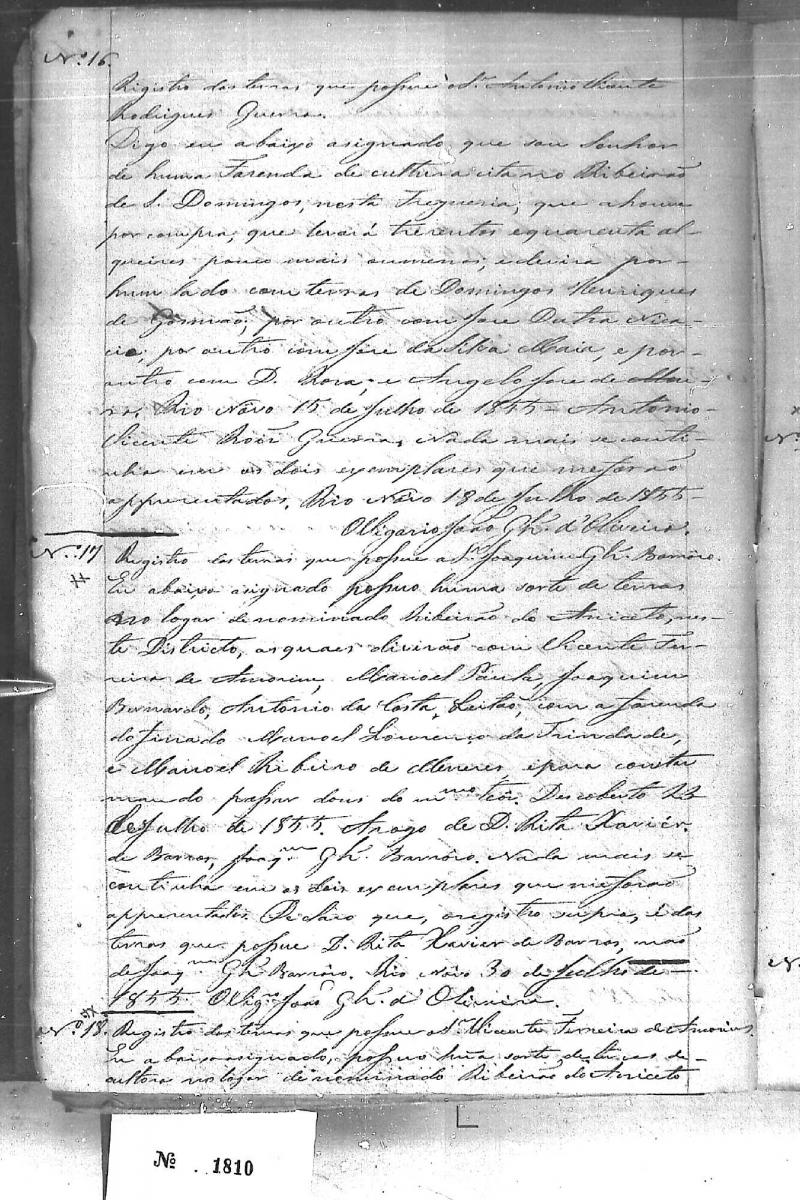 Nº 16.
Registro das terras que possue o Sr. Antonio Vicente
Rodrigues Guerra.
Digo eu abaixo asignado que sou Senhor
de huma Fazenda de cultura cita no Ribeirão
de S. Domingos, nesta Freguezia, que a houve
por compra, que levará trezentos e quarenta al-
queires pouco mais oumenos, e deviza por-
hum lado com terras de Domingos Henriques
de Gosmão, por outro com Jose Dutra Nica-
cio, por outro com Jose da Silva Maia, e por-
outro com D. Roza, e Angelo Jose de
Rio Novo 15 de Julho de 1855 - Antonio-
Vicente Roiz Guerra. Nada mais se conti-
nha em os dois exemplares que me forão
apprezentados. Rio Novo 18 de Julho de 1855-
Olligario João Glz. d'Oliveira.
Nº 17
Registro das terras que possue o Sr. Joaquim Glz. Barrozo.
Eu abaixo asignado possuo huma sorte de terras
no logar denominado Ribeirão do Aniceto, nes-
te Districto, as quaes divizão com Vicente Fer-
reira de Amorim, Manoel Paula, Joaquim
Bernardo, Antonio da Costa Leitão, com a fazenda
do finado Manoel Lourenço da Trindade,
e Manoel Ribeiro de Menezes e para constar
mando passar dous do mmo teor. Descoberto 22
de Julho de 1855. Arogo de D. Rita Xavier
de Barros, Joaqm Glz. Barrozo. Nada mais se
continha em os dois exemplares que me forão
apprezentados. Declaro que, o registro supra, é das
terras que possue D. Rita Xavier de Barros, não
de Joaqm Glz. Barrozo. Rio Novo 30 de Julho de-
1855. Olligº João Glz. d'Oliveira.
Nº 18. Registro das terras que possue o Sr. Vicente Ferreira de Amorim.
Eu abaixo asignado, possuo hua sorte de terras de-
cultura no logar denominado Ribeirão do Aniceto
Nº 1810